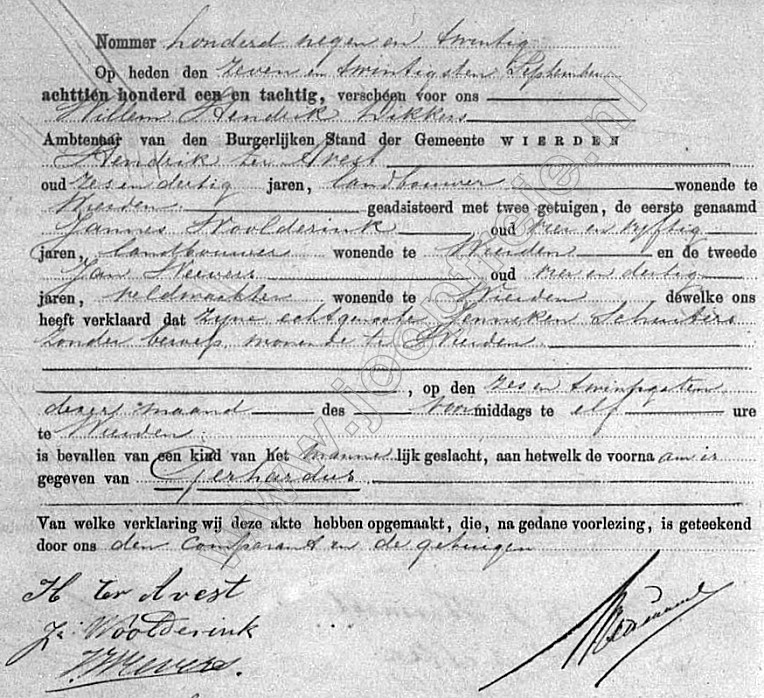 Nommer honderd negen en twintig
Op heden den zeven en twintigsten September
achttien honderd een en tachtig, verscheen voor ons
Willem Hendrik Dikkers
Ambtenaar van den Burgerlijken Stand der Gemeente WIERDEN
Hendrik ter Avest
oud zes en dertig jaren, landbouwer wonende te
Wierden geadsisteerd met twee getuigen, de eerste genaamd
Jannes Woolderink oud vier en vyftig
jaren, landbouwer wonende te Wierden en de tweede
Jan Meevers oud vier en dertig
jaren, veldwachter wonende te Wierden dewelke ons
heeft verklaard dat zyne echtgenoote Jenneken Schuiters
zonder beroep wonende te Wierden
, op den zes en twintigsten
dezer maand des voormiddags te elf ure
te Wierden
is bevallen van een kind van het mannelijk geslacht, aan hetwelk de voornaam is
gegeven van Gerhardus
Van welke verklaring wij deze akte hebben opgemaakt, die, na gedane voorlezing, is geteekend
door ons den comparant en de getuigen
H ter Avest
J: Woolderink
www.jecompagnie.nl